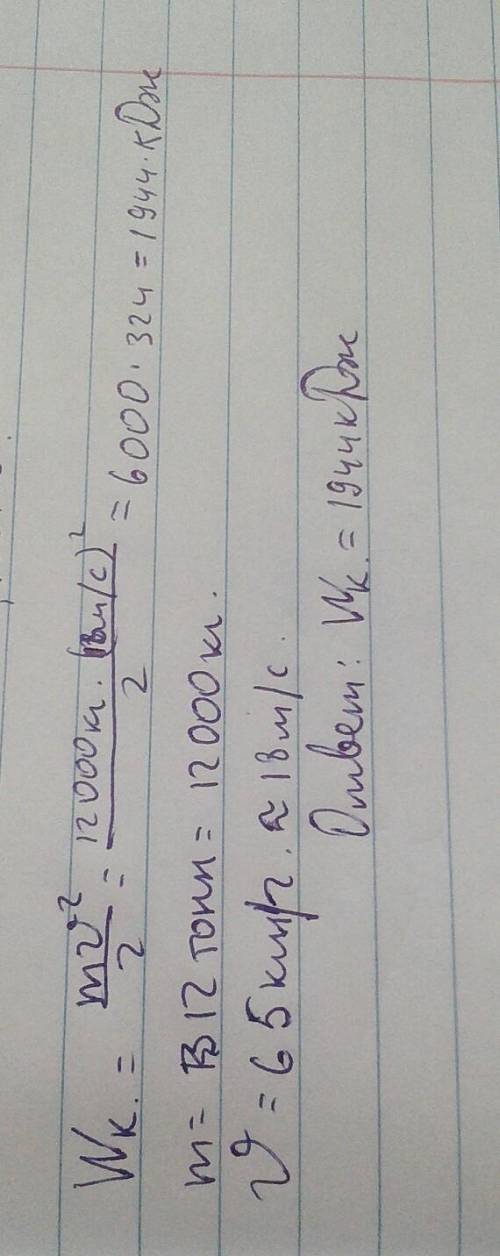 Wк. = mv²/2 = 12000кг · (18м/с)²/2 = 6000 · 324 = 1944 · кДж
m = 12 тонн = 12000кг.
v = 65 км/ч. ≈ 18м/с.
Ответ: Wк. = 1944кДж